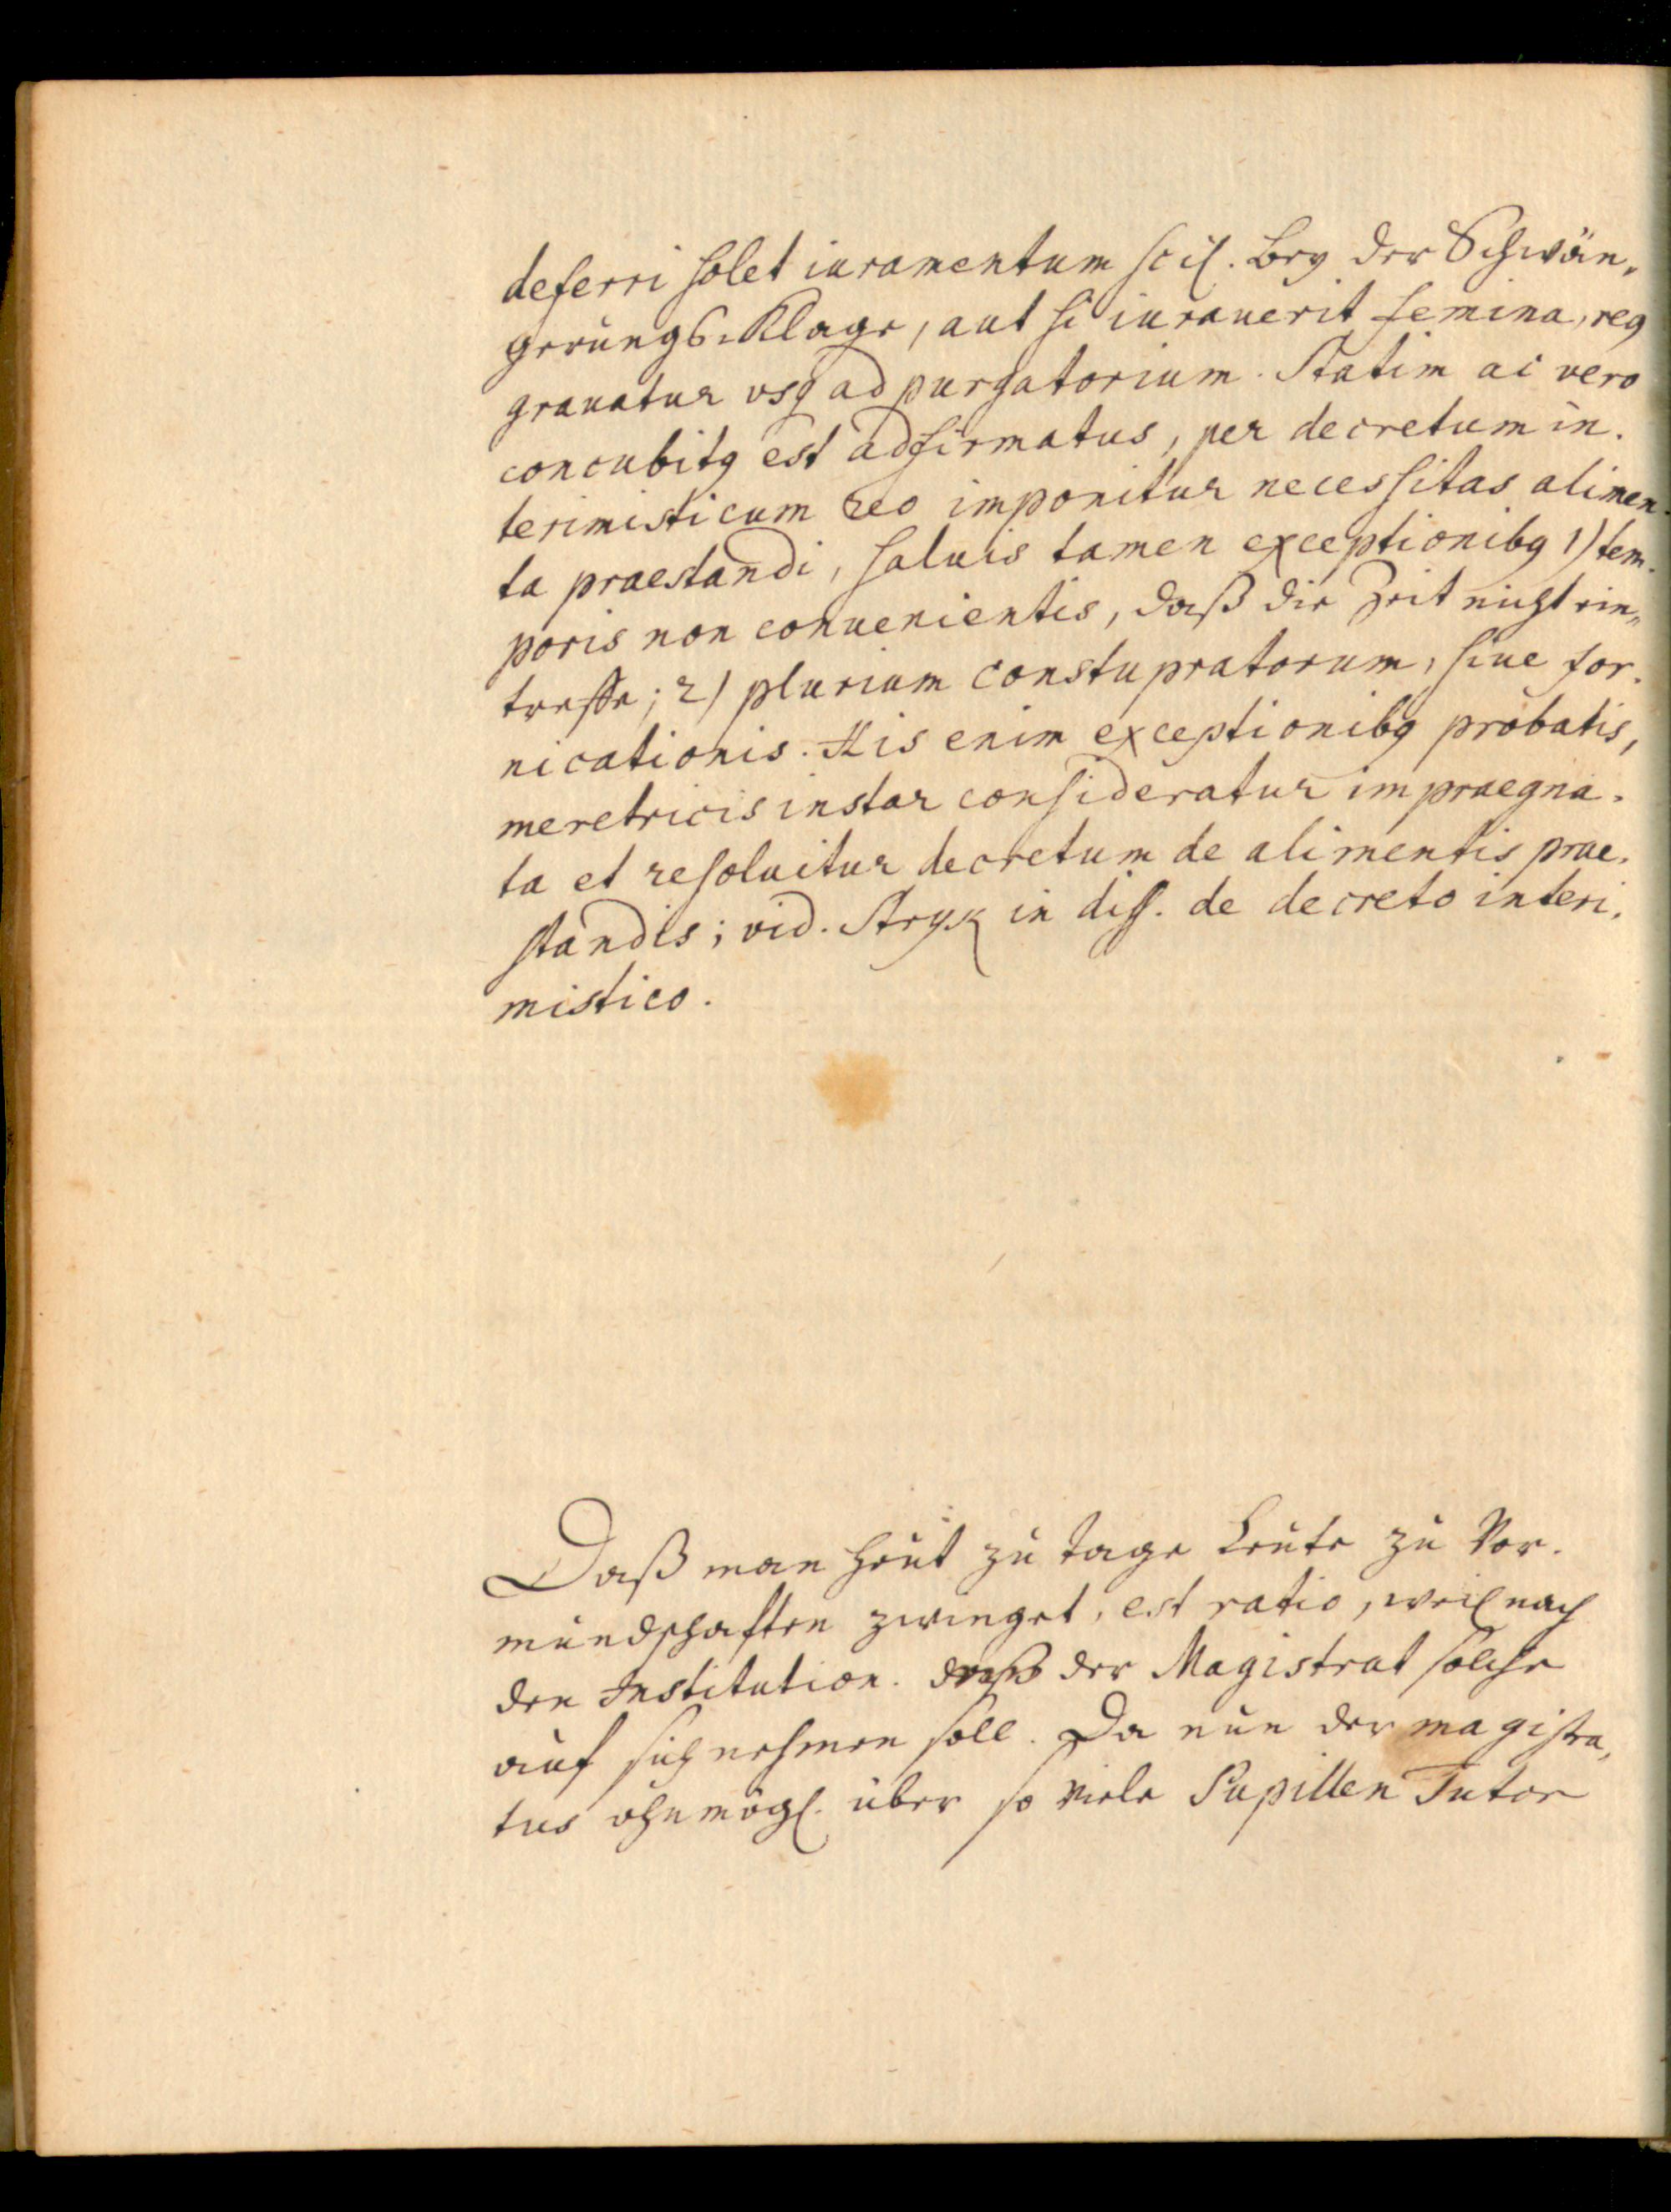 deferri solet iuramentum scil. bey der Schwän„
gerungs-Klage, aut si iurauerit femina, reꝰ
grauatur vsqꝫ ad purgatorium. Statim ac vero
concubitꝰ est adfirmatus, per decretum in-
terimisticum reo imponitur necessitas alimen-
ta praestandi, saluis tamen exceptionibꝰ 1) tem-
poris non conuenientis, daß die Zeit nicht ein„
treffe; 2) plurium constupratorum, siue for-
nicationis. His enim exceptionibꝰ probatis,
meretricis instar consideratur impraegna-
ta et resoluitur decretum de alimentis prae-
standis; vid. Stryk in diss. de decreto interi-
mistico.
Daß man heut zu tage Leute zu Vor-
mundschaften zwinget, est ratio, weil nach
den Institution. der Magistrat solche
auf sich nehmen soll. Da nun der magistra„
tus ohnmögl. über so viele Pupillen Tutor